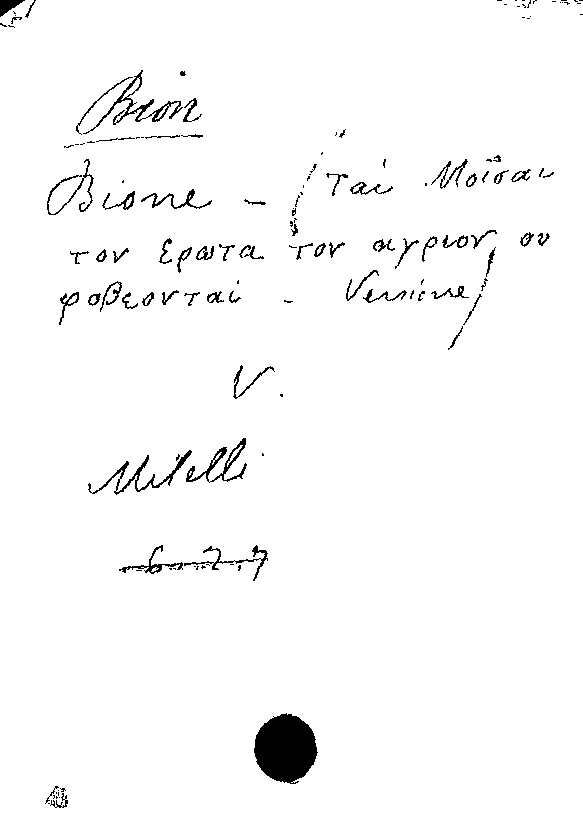 Bion
Bione - (ταὶ Μοῖσαι
τον ερωτα τον αγριον ου
φοβεονται - Versione)
V.
Mitelli
6.7.7